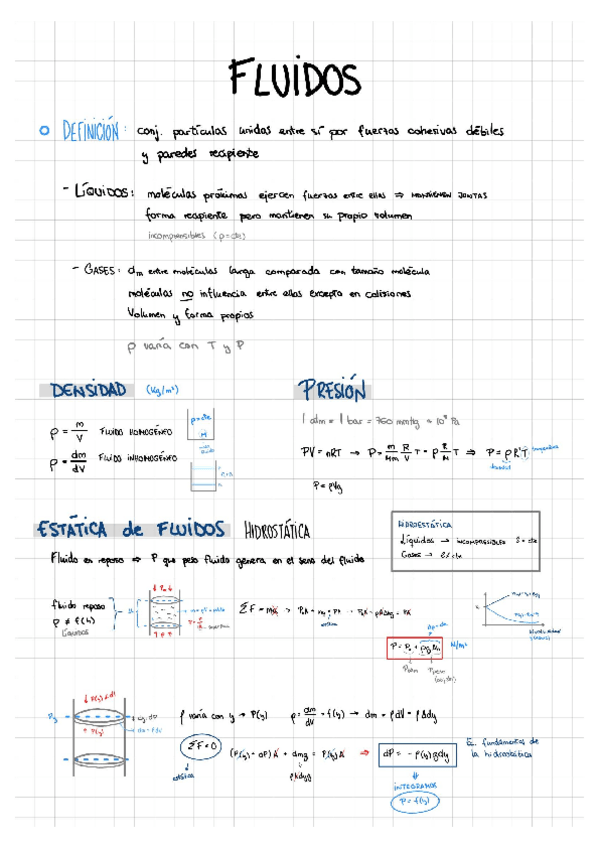 FLUIDOS
DEFINICIÓN: conj. partículas unidas entre sí por fuerzas cohesivas débiles
y paredes recipiente
- LÍQUIDOS: moléculas próximas ejercen fuerzas entre ellas ⇒ MANTIENEN JUNTAS
forma recipiente pero mantienen su propio volumen
incompresibles (ρ=cte)
- GASES: dm entre moléculas larga comparada con tamaño molécula
moléculas no influencia entre ellas excepto en colisiones
Volumen y forma propios
ρ varía con T y P
DENSIDAD (kg/m³)
ρ = m/V FLUIDO HOMOGÉNEO
ρ = dm/dV FLUIDO INHOMOGÉNEO
PRESIÓN
1 atm = 1 bar = 760 mmHg ≈ 10⁵ Pa
PV = nRT → P = m/Mm R/V T = ρ R/M T ⇒ P = ρR'T
P = ρVg
ESTÁTICA de FLUIDOS HIDROSTÁTICA
Fluido en reposo ⇒ P que peso fluido genera en el seno del fluido
HIDROESTÁTICA
Líquidos → INCOMPRESIBLES
Gases →
fluido reposo
ρ ≠ f(h)
LÍQUIDOS
ΣF = ma
N/m²
ρ varía con y → P(y) ρ = dm/dV = f(y) → dm = ρdV = ρAdy
ΣF = 0
(P(y) + dP) A + dmg = P(y) A ⇒ dP = - ρ(y)gdy
Ec. fundamental de
la hidrostática
ρAdyg
INTEGRAMOS
P = f(y)